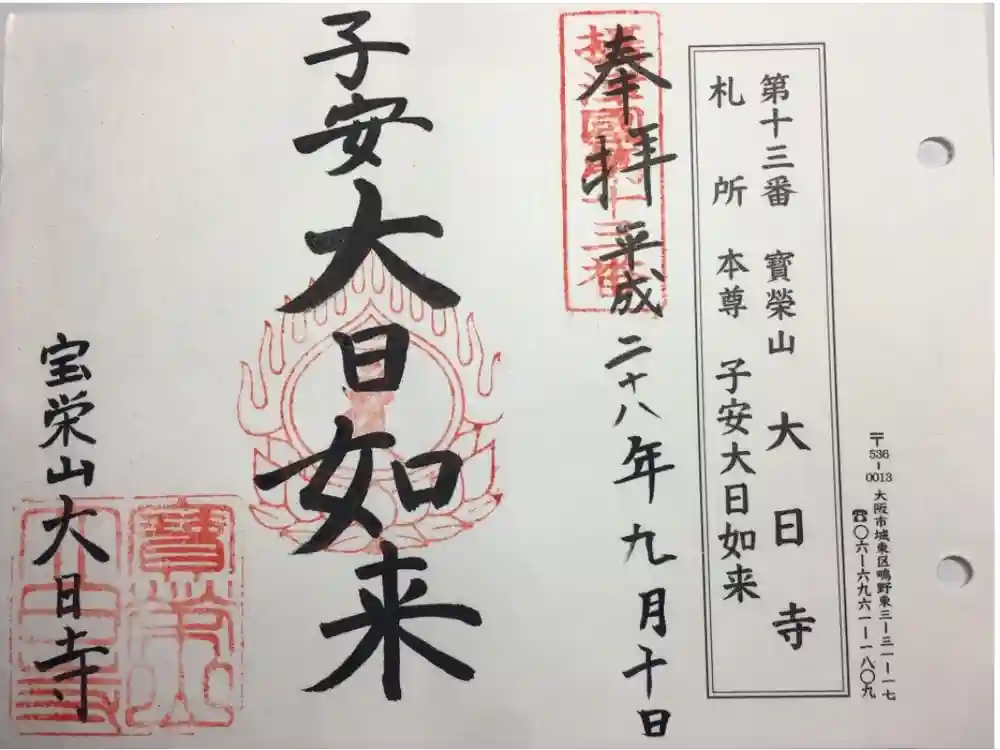 〒536-0013 大阪市城東区鴫野東三ー三一ー一七
☎〇六ー六九六一ー一八〇九
第十三番 寳榮山 大日寺
札所 本尊 子安大日如来
摂津國第十三番
奉拝 平成二十八年九月十日
子安大日如来
宝栄山大日寺
寳榮山
大日寺